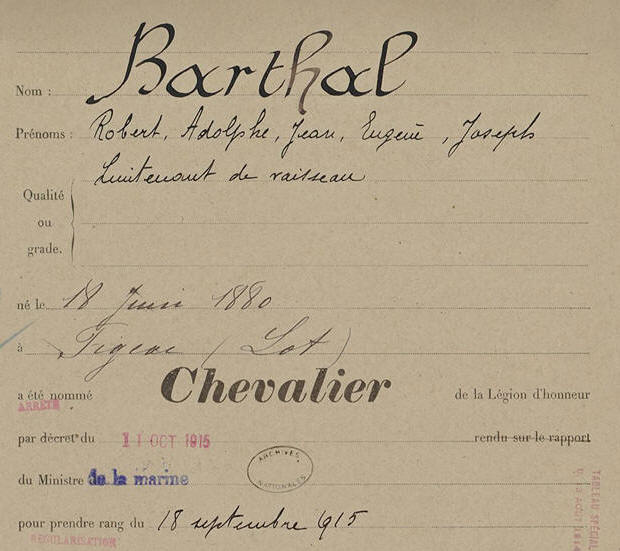 Nom : Barthal
Prénoms : Robert, Adolphe, Jean, Eugène, Joseph
Lieutenant de vaisseau
Qualité
ou
grade.
né le 18 Juin 1880
à Figeac (Lot)
a été nommé Chevalier de la Légion d'honneur
ARRÊTÉ
par décret du 11 OCT 1915 rendu sur le rapport
du Ministre de la marine
ARCHIVES NATIONALES
pour prendre rang du 18 septembre 1915
RÉGULARISATION
TABLEAU SPÉCIAL